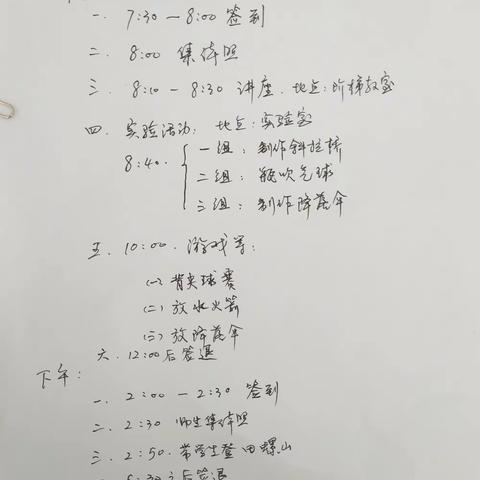 一. 7:30 — 8:00 签到
二. 8:00 集体照
三. 8:10 - 8:30 讲座. 地点:阶梯教室
四. 实验活动: 地点:实验室
8:40. 一组: 制作斜拉桥
二组: 瓶吹气球
三组: 制作降落伞
五. 10:00. 游戏等:
(一) 背夹球赛
(二) 放水火箭
(三) 放降落伞
六. 12:00后签退
下午:
一. 2:00 — 2:30 签到
二. 2:30 师生集体照
三. 2:50. 带学生登田螺山
5:30之后签退